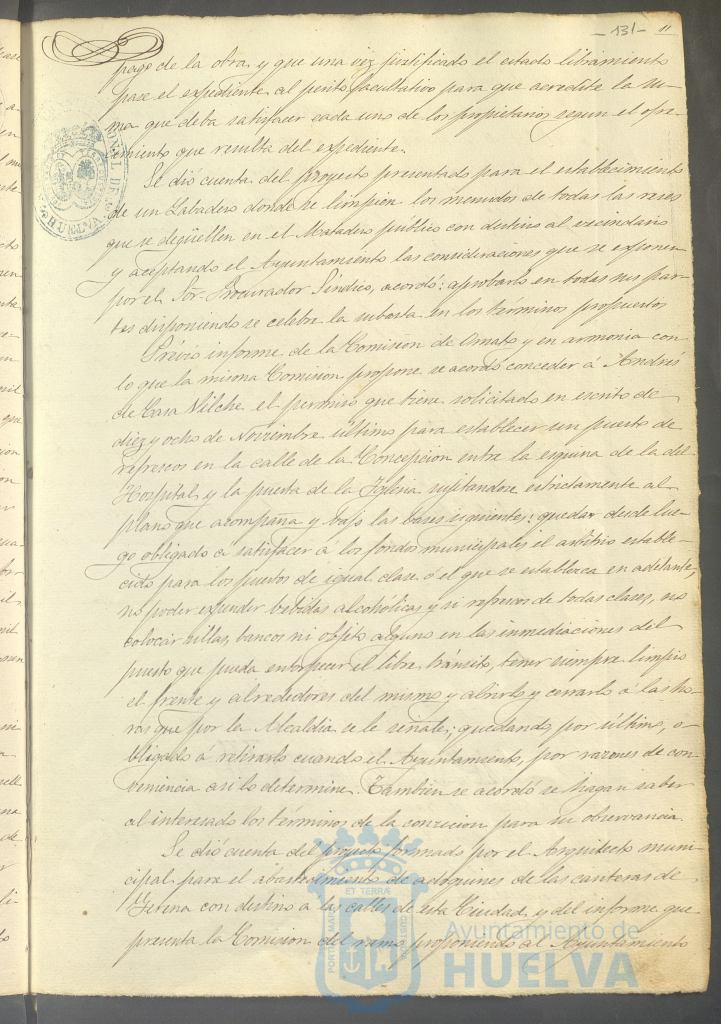 - 131 - 11
pago de la obra, y que una vez justificado el estado libramiento
pase el expediente al perito facultativo para que acredite la su-
ma que deba satisfacer cada uno de los propietarios segun el ofre-
cimiento que resulta del expediente.
Se dió cuenta del proyecto presentado para el establecimiento
de un Labadero donde se limpien los menudos de todas las reses
que se degüellen en el Matadero público con destino al vecindario
y aceptando el Ayuntamiento las consideraciones que se exponen
por el Sor. Procurador Síndico, acordó: aprobarlo en todas sus par-
tes disponiendo se celebre la subasta en los términos propuestos
Prévio informe de la Comision de Ornato y en armonia con
lo que la misma Comision propone se acordó conceder á Andrés
de Casa Vilche el permiso que tiene solicitado en escrito de
diez y ocho de Noviembre último para establecer un puesto de
refrescos en la calle de la Concepcion entre la esquina de la del
Hospital y la puerta de la Iglesia sujetandose estrictamente al
plano que acompaña y bajo las bases siguientes: quedar desde lue-
go obligado á satisfacer á los fondos municipales el arbitrio estable-
cido para los puestos de igual clase ó el que se establezca en adelante;
no poder expender bebidas alcohólicas y si refrescos de todas clases, no
colocar sillas, bancos ni objeto alguno en las inmediaciones del
puesto que pueda entorpecer el libre tránsito, tener siempre limpio
el frente y alrededores del mismo y abrirlo y cerrarlo á las ho-
ras que por la Alcaldia se le señale; quedando, por último, o-
bligado á retirarlo cuando el Ayuntamiento, por razones de con-
veniencia asi lo determine. Tambien se acordó se hagan saber
al interesado los términos de la concesion para su observancia.
Se dió cuenta del proyecto formado por el Arquitecto muni-
cipal para el abastecimiento de adoquines de las canteras de
Gerena con destino a las calles de esta Ciudad y del informe que
presenta la Comision del ramo proponiendo al Ayuntamiento
HUELVA
ET TERRÆ
PORTUS MARIS
CUSTODIA
Ayuntamiento de
HUELVA